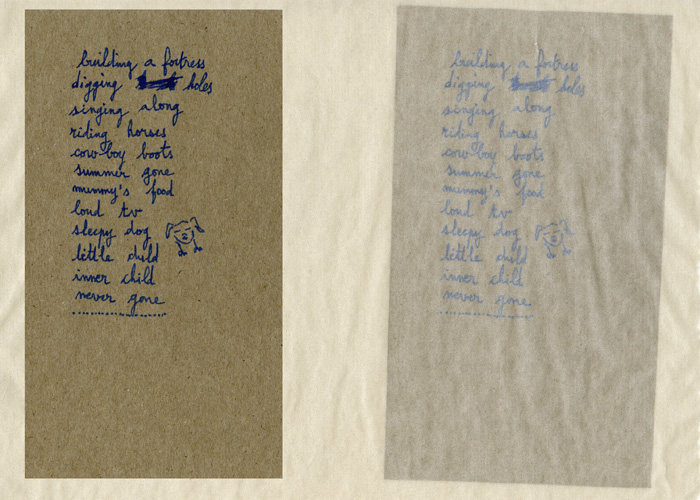 building a fortress
digging holes
singing along
riding horses
cow-boy boots
summer gone
mummy's food
loud tv
sleepy dog
little child
inner child
never gone
building a fortress
digging holes
singing along
riding horses
cow-boy boots
summer gone
mummy's food
loud tv
sleepy dog
little child
inner child
never gone